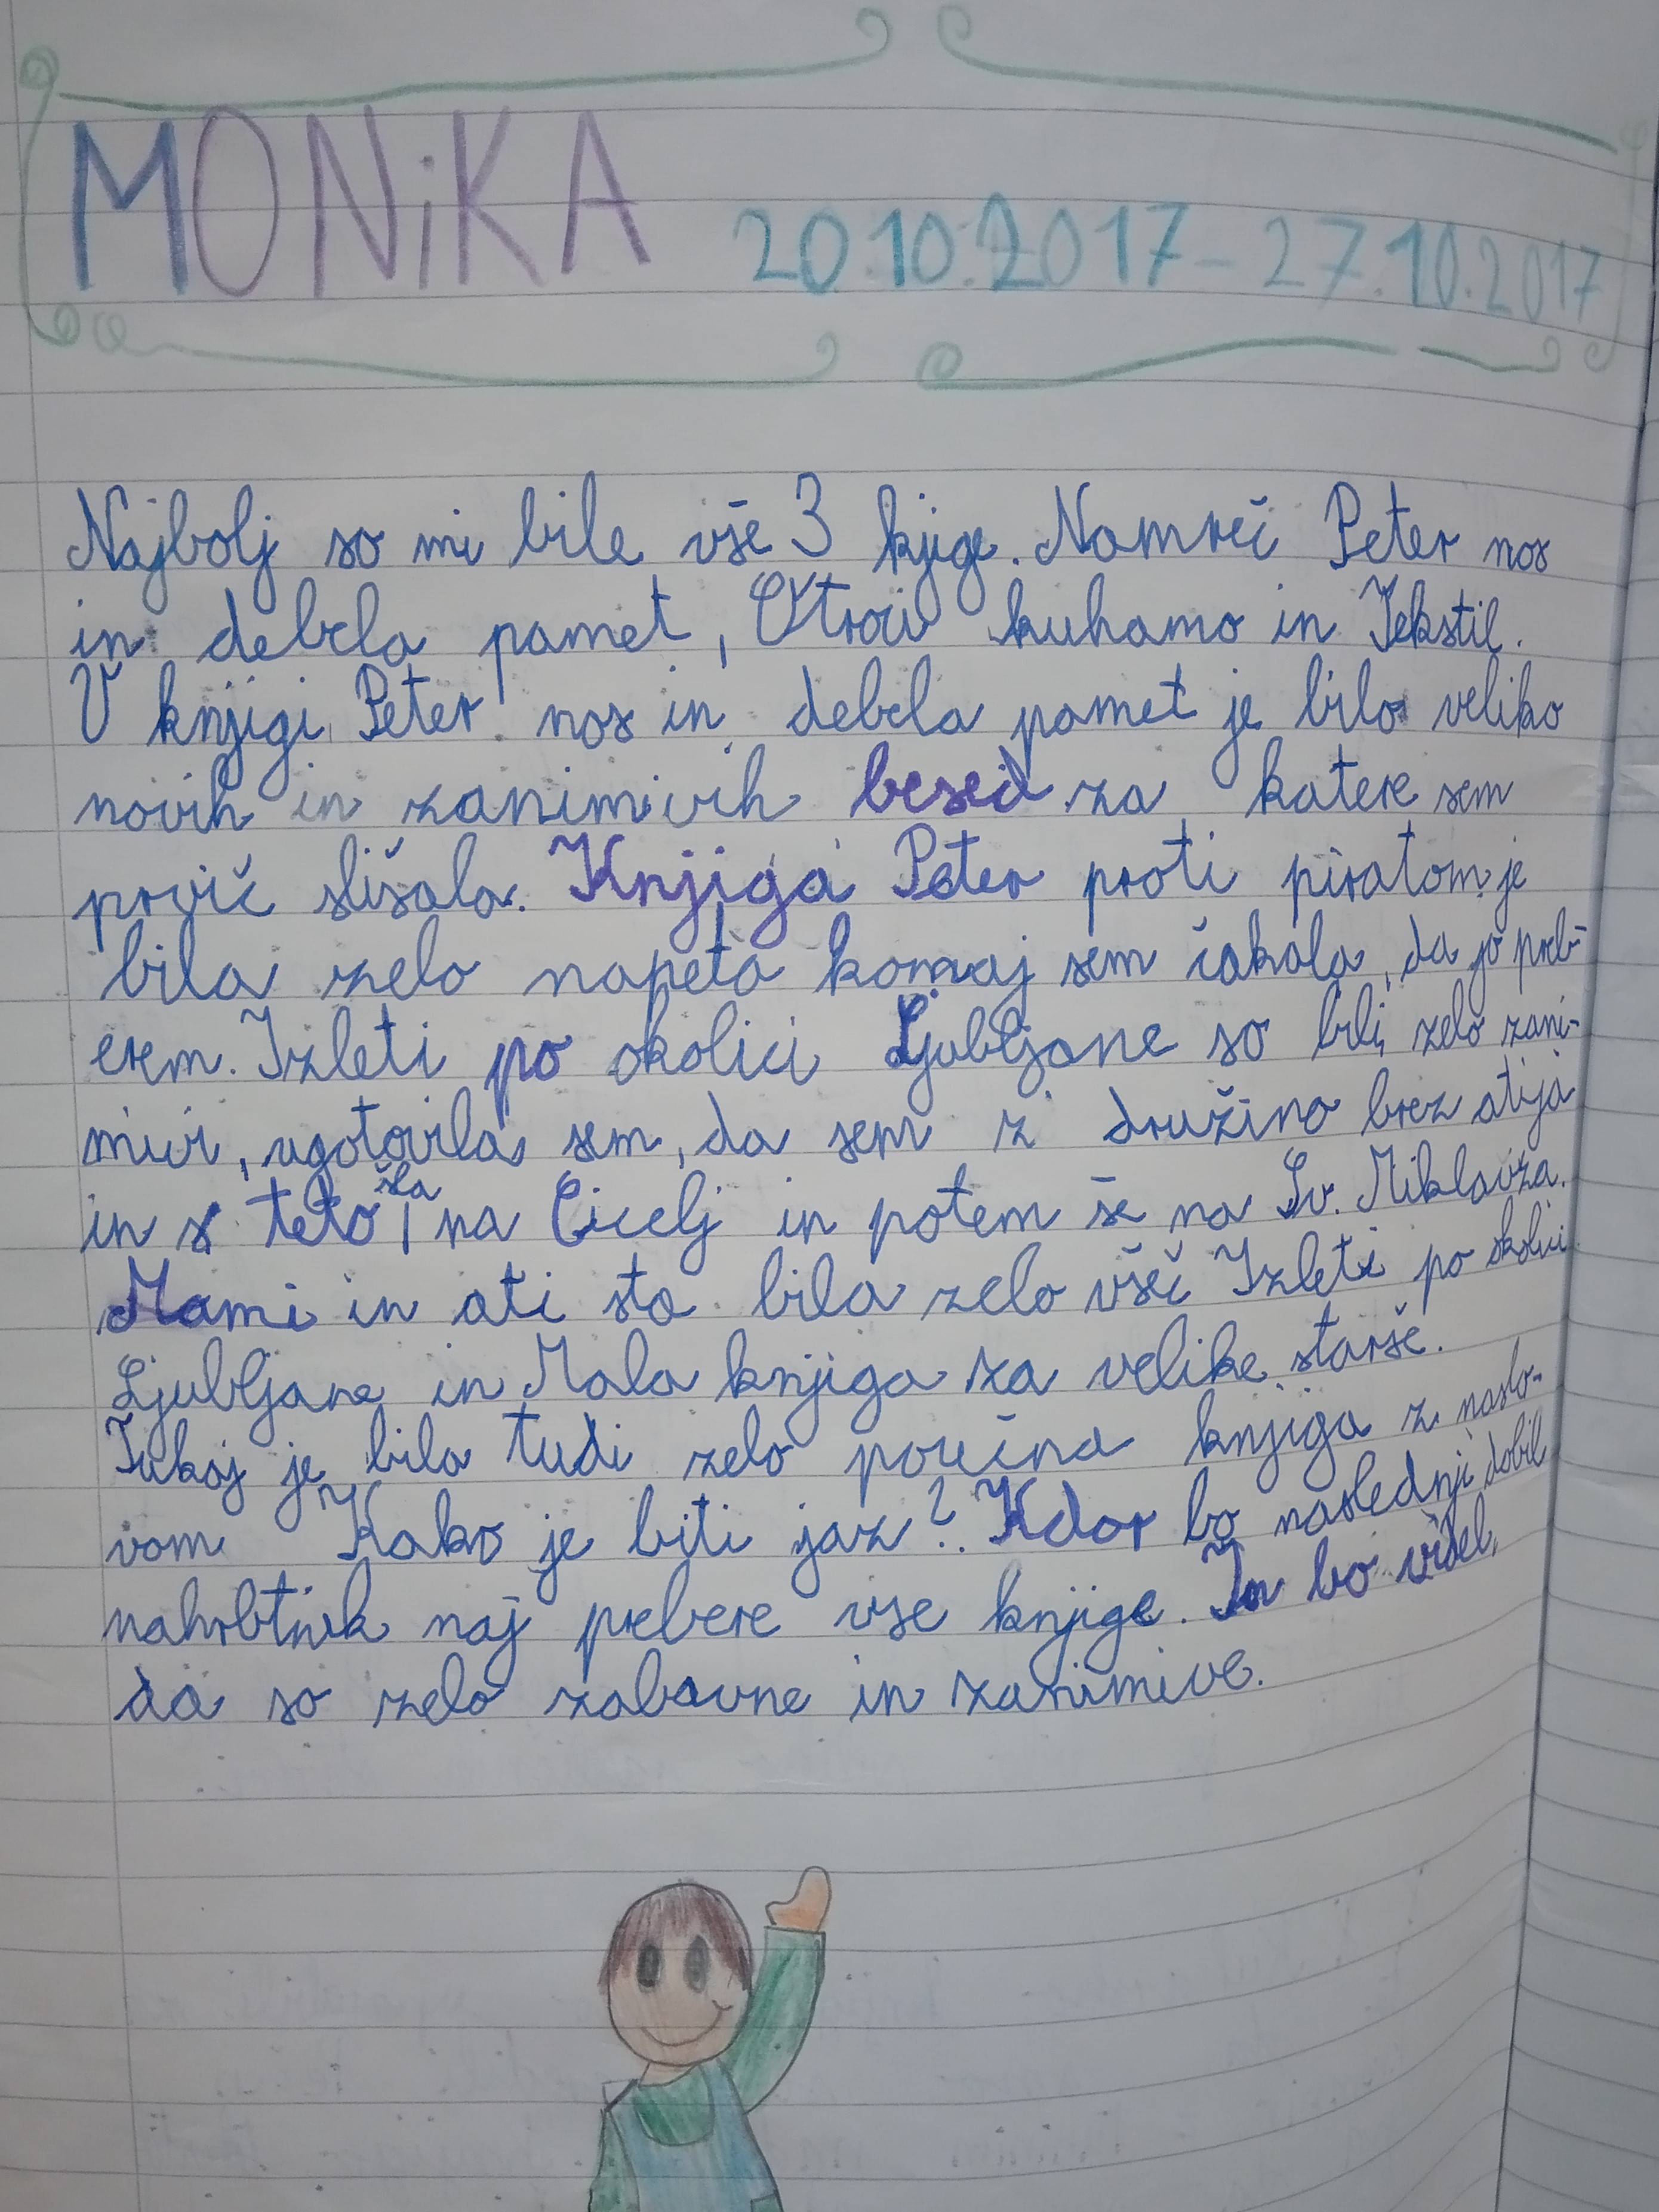 MONiKA 20.10.2017-27.10.2017
Najbolj so mi bile vše 3 kjige. Namreč Peter nos
in debela pamet, Otroci kuhamo in Tekstil.
V knjigi Peter nos in debela pamet je bilo veliko
novih in zanimivih besed za katere sem
prvič slišala. Knjiga Peter proti piratom je
bila zelo napeta komaj sem čakala, da jo preb-
erem. Izleti po okolici Ljubljane so bili zelo zani-
mivi, ugotovila sem, da sem z družino brez atija
in s teto šla na Cicelj in potem še na Sv. Miklavža.
Mami in ati sta bila zelo všeč Izleti po okolici
Ljubljane in Mala knjiga za velike starše.
Tukaj je bila tudi zelo poučna knjiga z naslo-
vom Kako je biti jaz?. Kdor bo naslednji dobil
nahrbtnik naj prebere vse knjige. In bo videl,
da so zelo zabavne in zanimive.